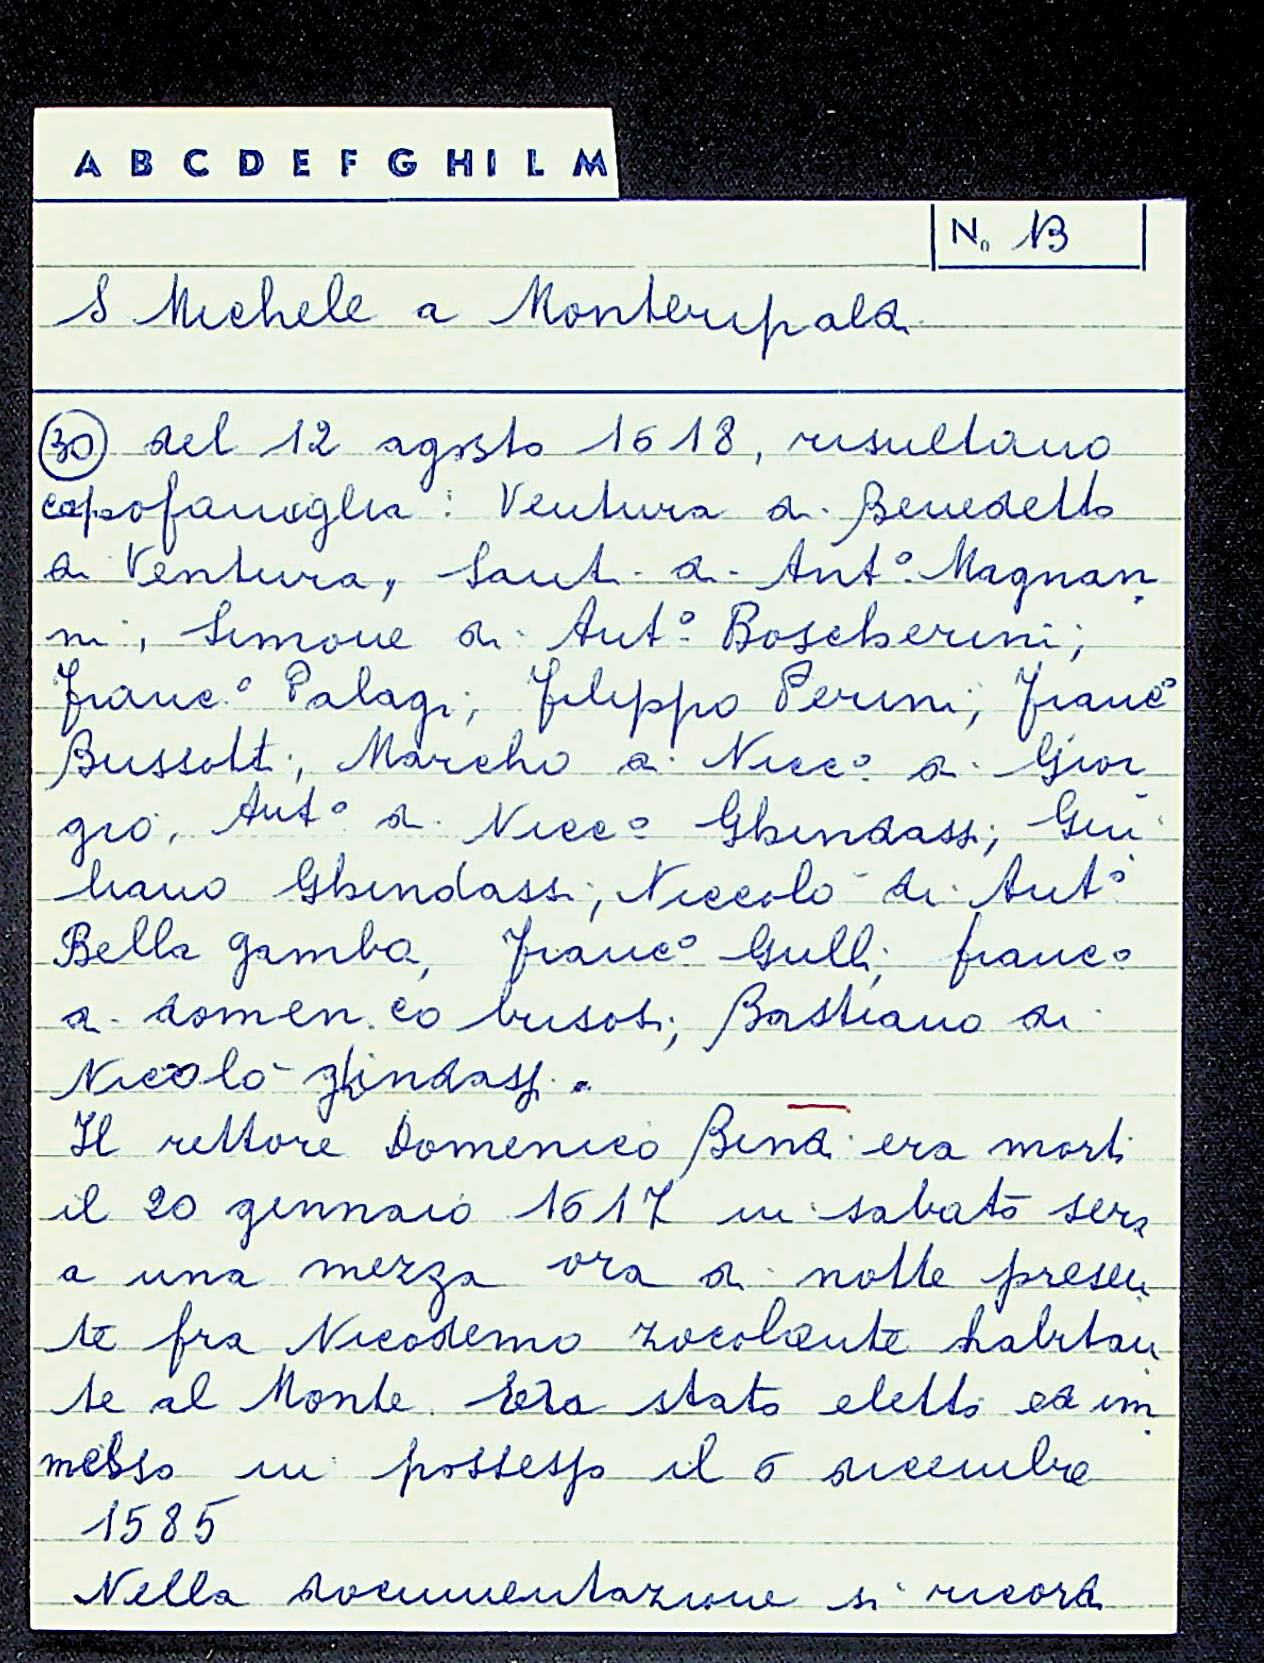 A B C D E F G H I L M
N. 13
S Michele a Monteripaldi
30 del 12 agosto 1618, risultano
capofamiglia: Ventura di Benedetto
di Ventura, Sant. di Ant.º Magnan
ni, Simone di Ant.º Boscherini;
Franc.º Palagi; Filippo Perini; Franc.º
Bussotti, Marcho di Nicc.º di Gior
gio, Ant.º di Nicc.º Ghindassi; Giu
liano Ghindassi; Niccolò di Ant.º
Bella gamba, Franc.º Gulli; franc.º
di domenico busoti; Bastiano di
Nicolò ghindassi.
Il rettore Domenico Bindi era morto
il 20 gennaio 1617 in sabato sera
a una mezza ora di notte presen
te fra Nicodemo zocolante habitan
te al Monte. Era stato eletto ed im
messo in possesso il 6 dicembre
1585
Nella documentazione si ricorda